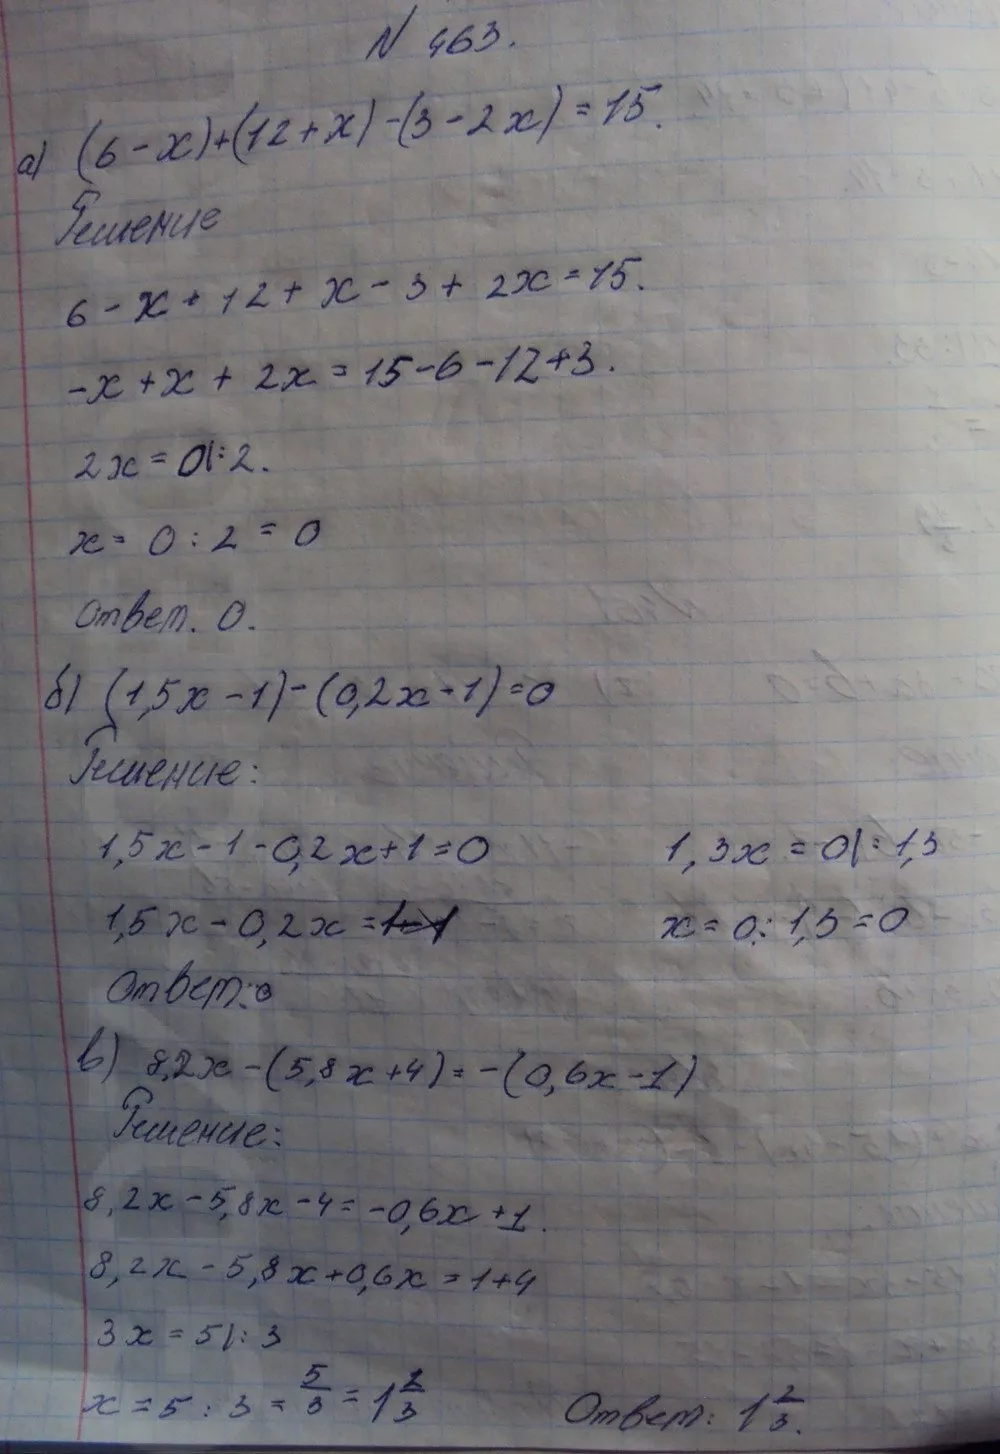 N 463.
а) (6-x)+(12+x)-(3-2x)=15.
Решение
6-x+12+x-3+2x=15.
-x+x+2x=15-6-12+3.
2x=0|:2.
x=0:2=0
Ответ. 0.
б) (1,5x-1)-(0,2x-1)=0
Решение:
1,5x-1-0,2x+1=0
1,3x=0|:1,3
1,5x-0,2x=1-1
x=0:1,3=0
Ответ:0
в) 8,2x-(5,8x+4)=-(0,6x-1)
Решение:
8,2x-5,8x-4=-0,6x+1.
8,2x-5,8x+0,6x=1+4
3x=5|:3
x=5:3=5/3=1 2/3
Ответ: 1 2/3.